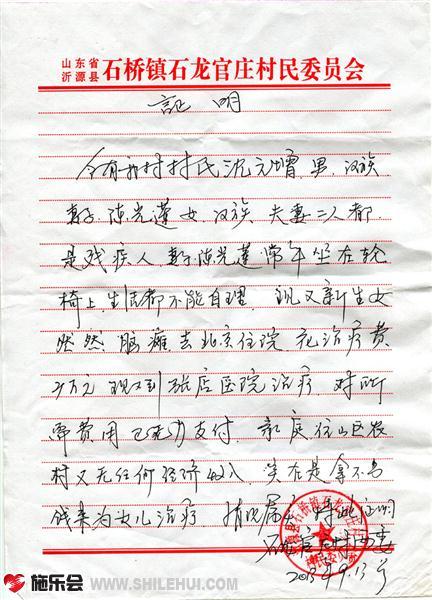 山东省
沂源县 石桥镇石龙官庄村民委员会
証 明
今有我村村民沈元增，男，汉族
妻子陈光莲女 汉族 夫妻二人都
是残疾人，妻子陈光莲常年坐在轮
椅上，生活都不能自理，现又新生女
突然脑瘫去北京住院 花治疗费
万元 现又到张店医院治疗 对所
需费用已无力支付，家庭住山区农
村又无任何经济收入 实在是拿不出
钱来为女儿治疗 情况属实 特此证明
石龙官庄村委
2013年9.13号
施乐会 WWW.SHILEHUI.COM